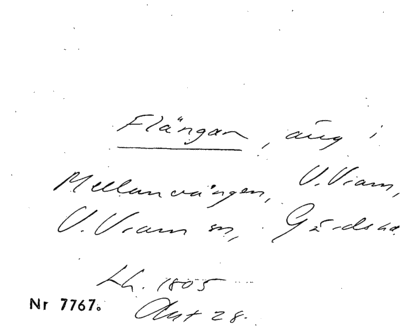 Flängan, äng i
Mellanvången, V.Vram,
V.Vram sn, Gärds hd.
Lh. 1805
Akt 28.
Nr 7767.